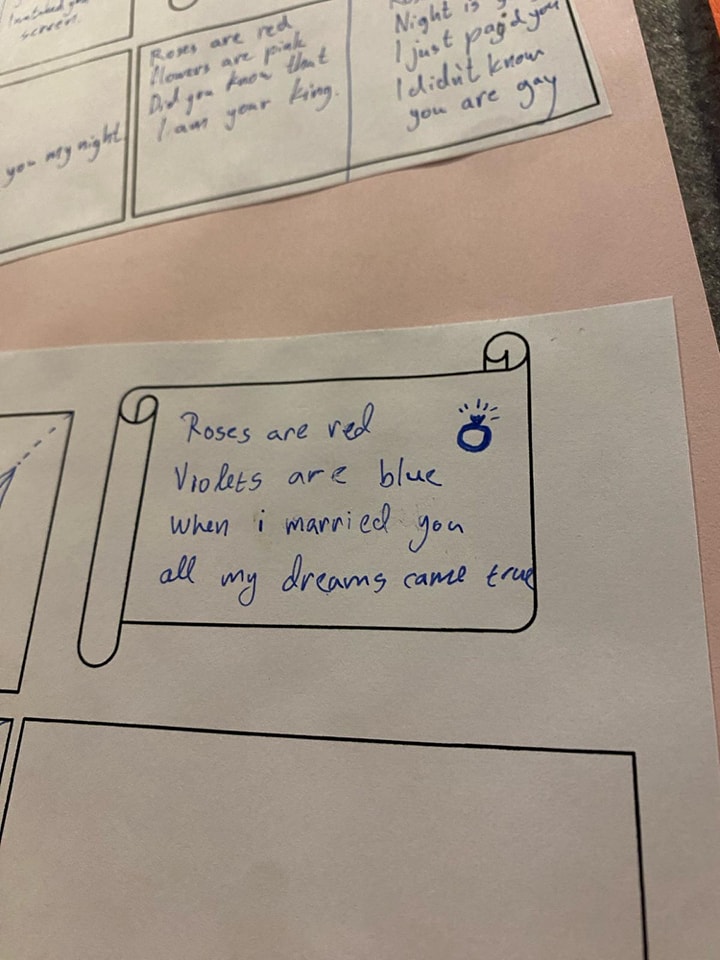 screen.
you my night.
Roses are red
flowers are pink
Did you know that
I am your king.
Night is
I just pag'd you
I didn't know
you are gay
Roses are red
Violets are blue
when i married you
all my dreams came true